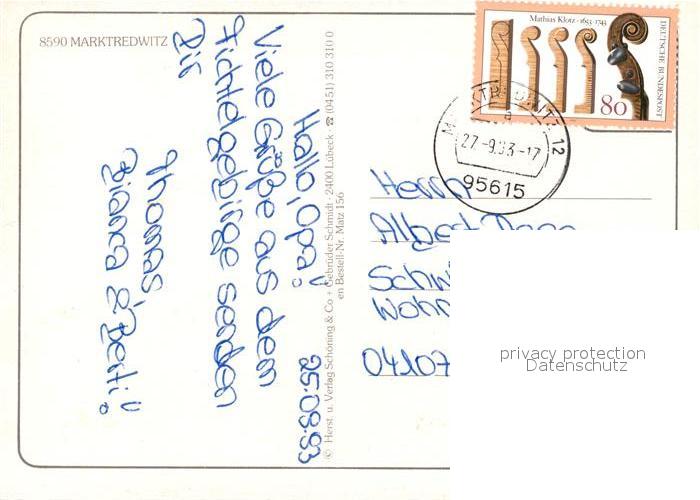 8590 MARKTREDWITZ
Hallo, Opa!
25.09.93
Viele Grüße aus dem
Fichtelgebirge senden
Dir
Thomas,
Bianca & Berti!
© Herst. u. Verlag Schöning & Co + Gebrüder Schmidt · 2400 Lübeck · ☎ (0451) 310 310 0
en Bestell-Nr. Matz 156
Mathias Klotz · 1653-1743
DEUTSCHE BUNDESPOST
80
12
a
27.-9.93-17
95615
Herrn
Albert
Schw
Wohn
04107
privacy protection
Datenschutz